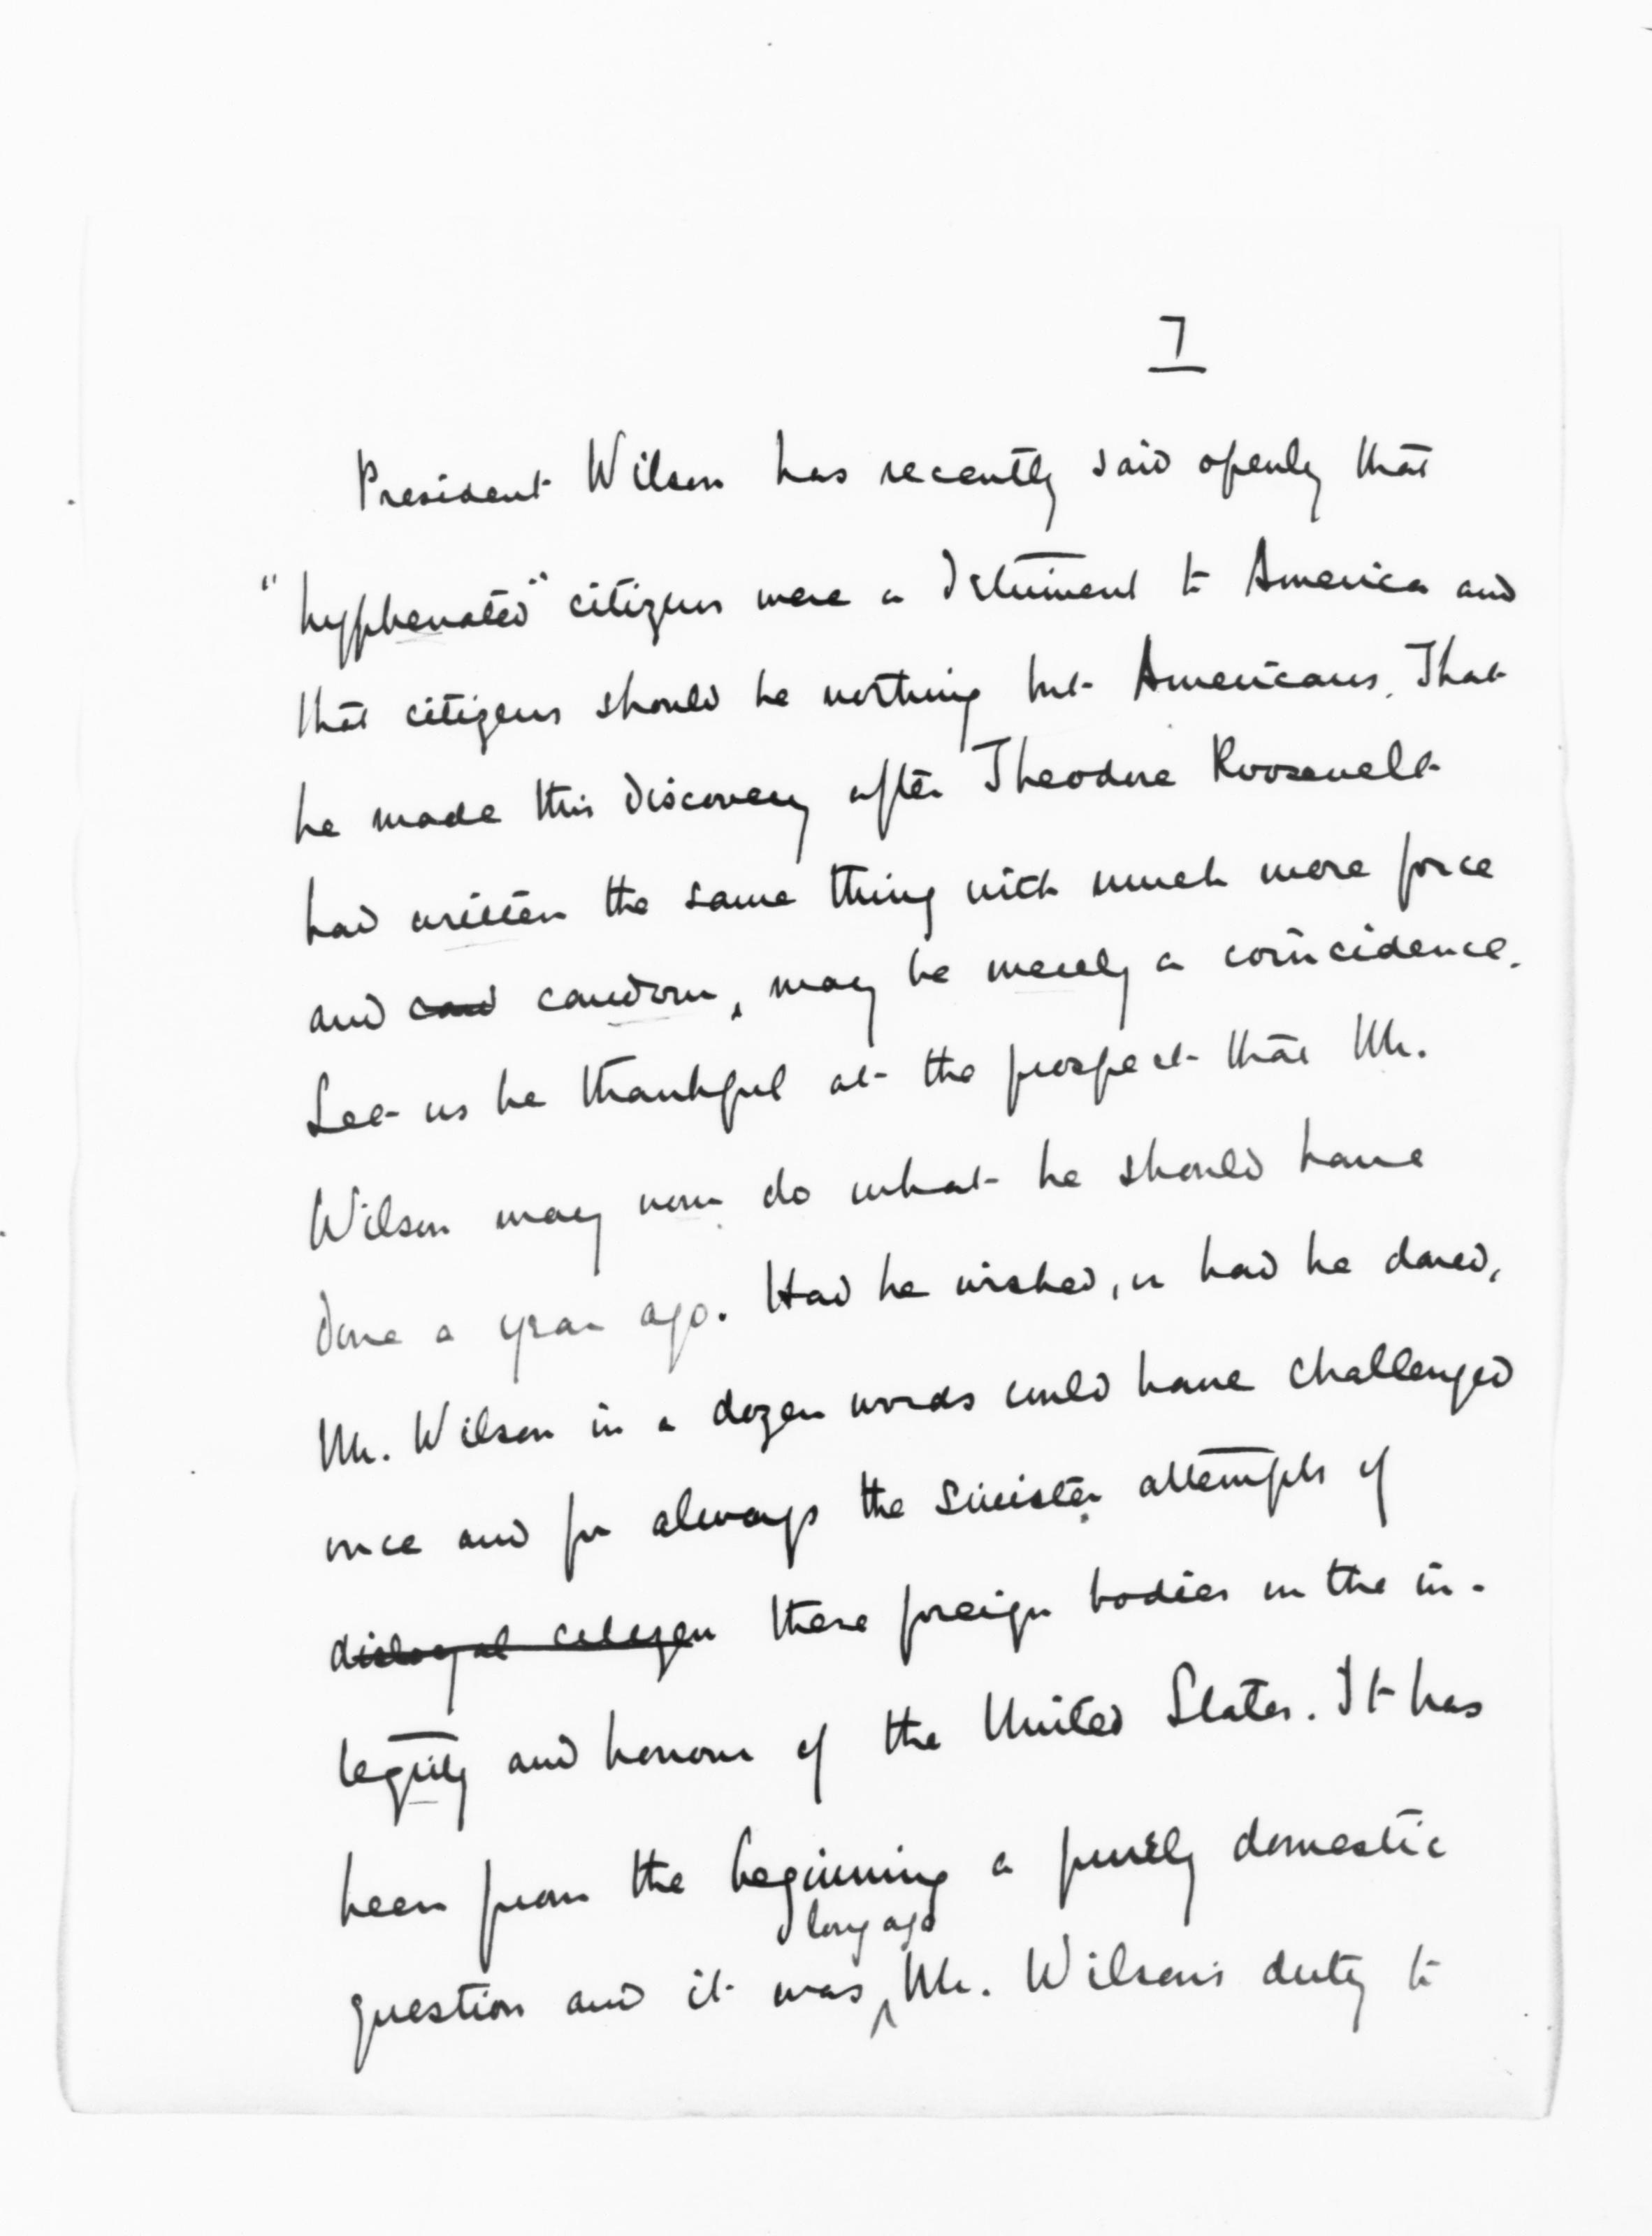 7
President Wilson has recently said openly that
"hyphenated" citizens were a detriment to America and
that citizens should be nothing but Americans. That
he made this discovery after Theodore Roosevelt
had written the same thing with much more force
and cand candour, may be merely a coincidence.
Let us be thankful at the prospect that Mr.
Wilson may now do what he should have
done a year ago. Had he wished, or had he dared,
Mr. Wilson in a dozen words could have challenged
once and for always the sinister attempts of
disloyal citizen these foreign bodies on the in-
tegrity and honour of the United States. It has
been from the beginning a purely domestic
long ago
question and it was Mr. Wilson's duty to